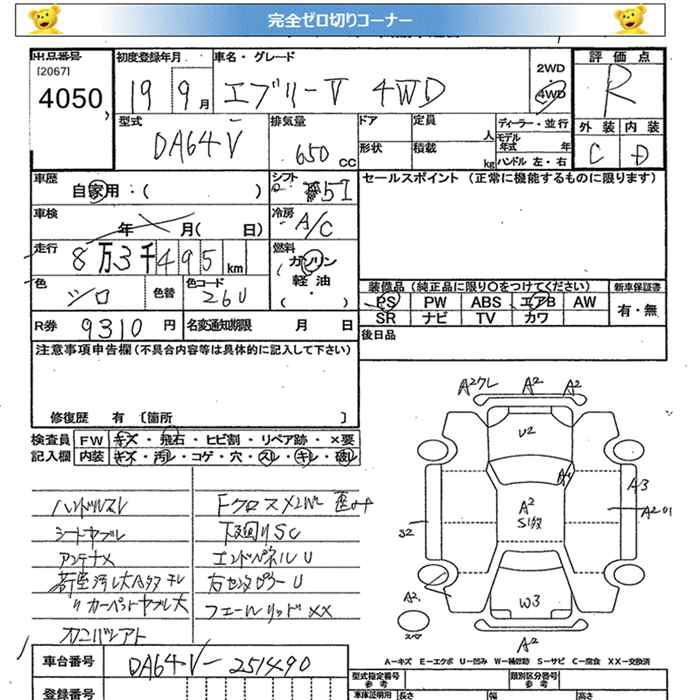 完全ゼロ切りコーナー
出品番号 初度登録年月 車名・グレード 評価点
[2067]
4050 19 9月 エブリーV 4WD 2WD 4WD R
型式 DA64V 排気量 650 cc ドア 定員 人 ディーラー・並行 外装 内装
形状 積載 kg モデル年式 年 C D
ハンドル 左・右
車歴 自家用:( ) シフト 5I セールスポイント (正常に機能するものに限ります)
車検 年 月( 日) 冷房 A/C
走行 8万3千495km 燃料 ガソリン 軽油 ( ・ )
色 シロ 色替 色コード 26U
装備品(純正品に限り〇をつけてください) 新車保証書
PS PW ABS エアB AW 有・無
SR ナビ TV カワ
R券 9310 円 名変通知期限 月 日 後日品
注意事項申告欄(不具合内容等は具体的に記入して下さい)
修復歴 有 [箇所 ]
検査員 FW キズ・飛石・ヒビ割・リペア跡・×要
記入欄 内装 キズ・汚レ・コゲ・穴・スレ・キレ・破レ
ハンドルスレ
シートヤブレ
アンテナメ
荷室汚レ大
〃カーペットヤブレ大
下廻リSC
エンドパネルU
右センタピラーU
フューエルリッドXX
A2 A2
U2
A1
A3
A2
S2
A2
W3
A2
スペア
A2
A-キズ E-エクボ U-凹み W-補修跡 S-サビ C-腐食 XX-交換済
車台番号 DA64V-251490
登録番号
型式指定番号 参考 類別区分番号 参考
車庫証明用 長さ 幅 高さ